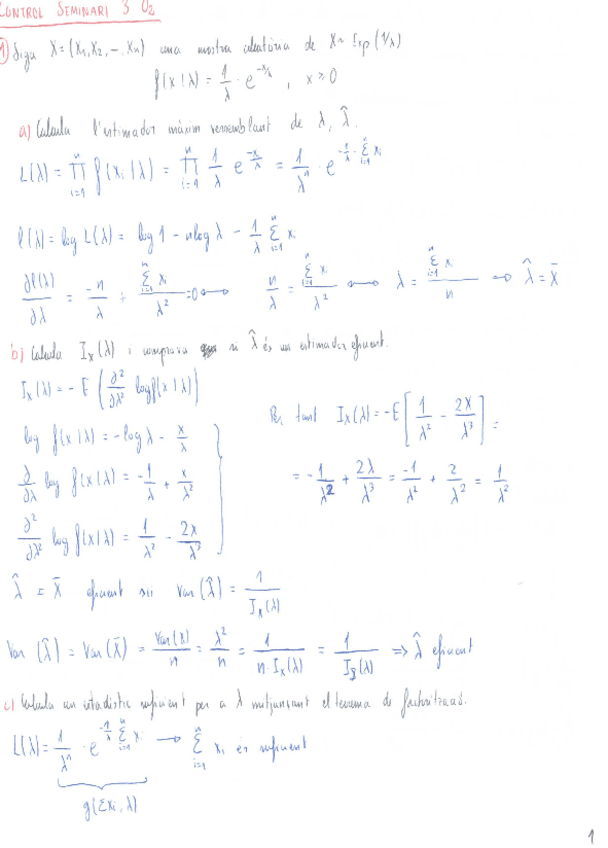 CONTROL SEMINARI 3 O2
1) Sigui X = (X₁, X₂, ... Xn) una mostra aleatòria de X ~ Exp(1/λ)
f(x|λ) = 1/λ · e^(-x/λ) , x ≥ 0
a) Calcula l'estimador màxim versemblant de λ, λ̂.
L(λ) = ∏_{i=1}^{n} f(xi|λ) = ∏_{i=1}^{n} 1/λ e^(-x/λ) = 1/λⁿ · e^(-1/λ · Σ_{i=1}^{n} xi)
l(λ) = log L(λ) = log 1 - n log λ - 1/λ Σ_{i=1}^{n} xi
∂l(λ)/∂λ = -n/λ + Σ_{i=1}^{n} xi/λ² = 0 ⟷ n/λ = Σ_{i=1}^{n} xi/λ² ⟷ λ = Σ_{i=1}^{n} xi/n → λ̂ = X̄
b) Calcula Iₓ(λ) i comprova si λ̂ és un estimador eficient.
Iₓ(λ) = - E(∂²/∂λ² log f(x|λ))
log f(x|λ) = -log λ - x/λ
∂/∂λ log f(x|λ) = -1/λ + x/λ²
∂²/∂λ² log f(x|λ) = 1/λ² - 2x/λ³
Per tant Iₓ(λ) = -E[1/λ² - 2X/λ³] =
= -1/λ² + 2λ/λ³ = -1/λ² + 2/λ² = 1/λ²
λ̂ = X̄ eficient sii Var(λ̂) = 1/Iₓ(λ)
Var(λ̂) = Var(X̄) = Var(X)/n = λ²/n = 1/(n·Iₓ(λ)) = 1/Iₓ(λ) ⟹ λ̂ eficient
c) Calcula un estadístic suficient per a λ mitjançant el teorema de factorització.
L(λ) = 1/λⁿ · e^(-1/λ Σ_{i=1}^{n} xi) → Σ_{i=1}^{n} xi és suficient
g(Σxi, λ)
1